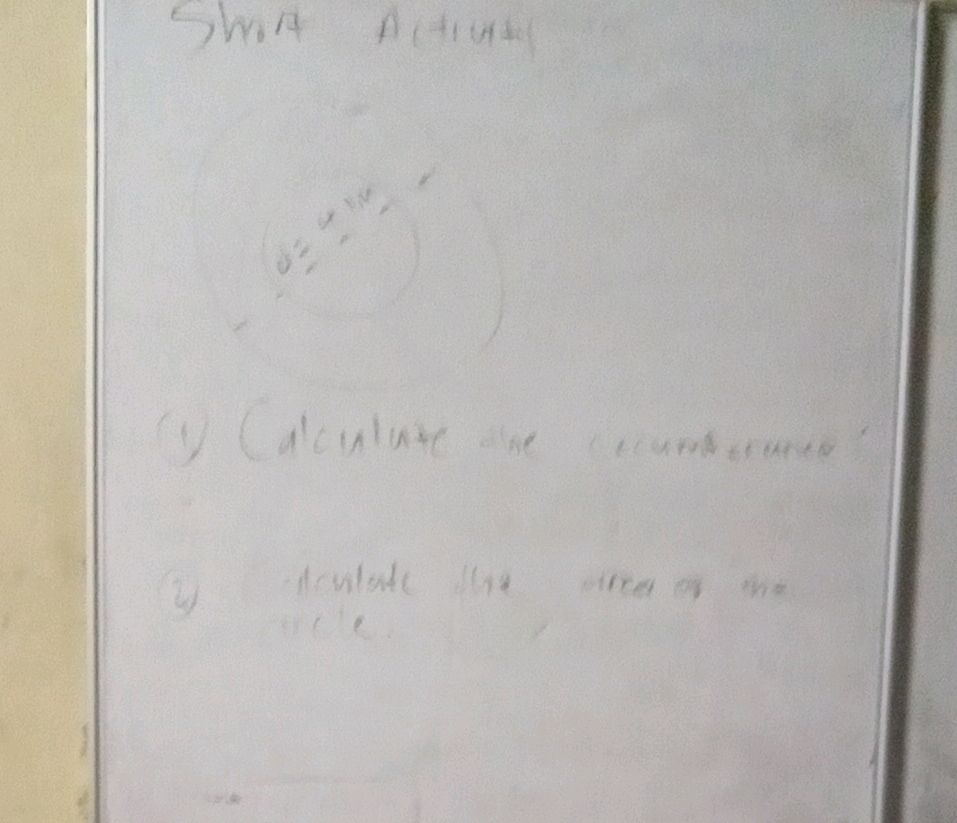 Short Activity
d =
(1) Calculate the circumference
(2) Calculate the area of the
circle.